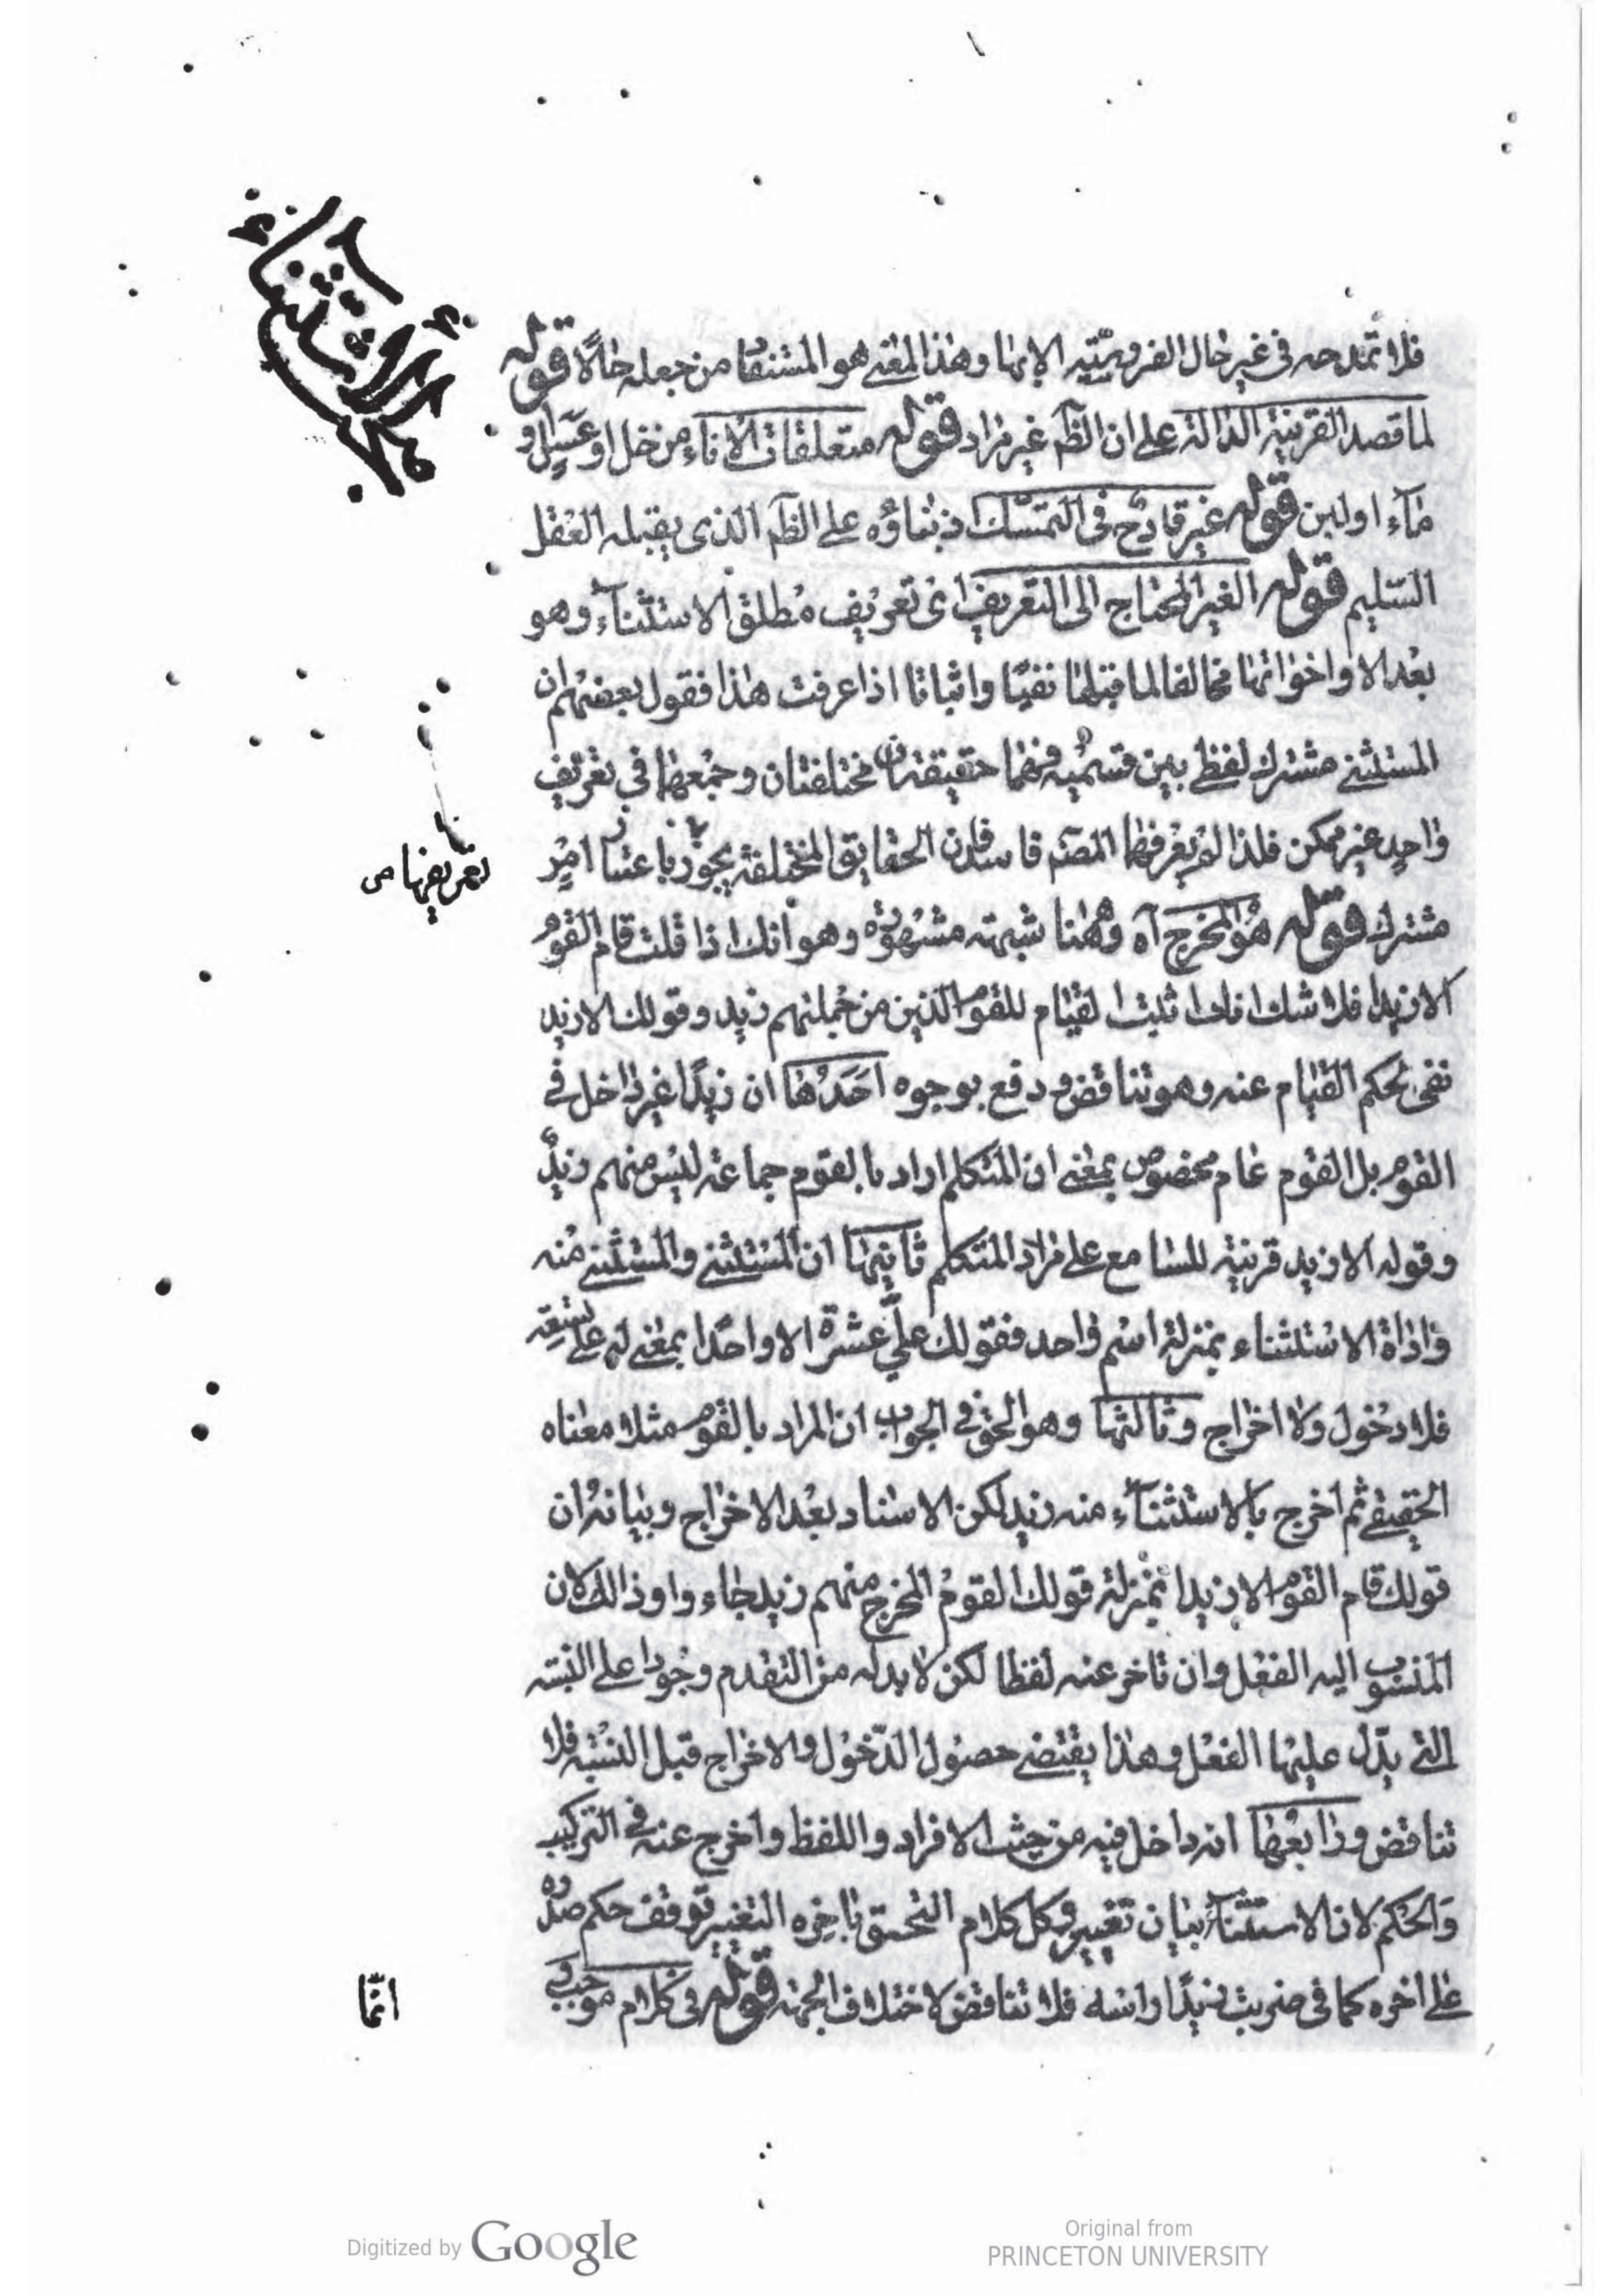 فلا تمدحه في غير حال الفروسيّته الايما وهذا المعنى هو المستفاد من جعله حالًا قوله
لما قصد القرينة الدالة على ان الظم غير مراد قوله متعلقات الاناء من خل او عسل او
ماء او لبن قوله غير قادح في التمسّك اذ بناؤه على الظم الذى يقبله العقل
السّليم قوله الغير المحتاج الى التعريف اى تعريف مطلق الاستثناء وهو
بعد الا واخواتها مخالفا لما قبلها نفيًا واثباتا اذا عرفت هذا فقول بعضهم ان
المستثنى مشترك لفظى بين قسميه فهما حقيقتان مختلفتان وجمعهما في تعريف
واحد غير ممكن فلذا لم يعرفهما المصنم فاسد لان الحقايق المختلفة يجوز باعتبار امر
تعريفها ص
مشترك قوله هو المخرج آه وههنا شبهته مشهورة وهو انك اذا قلت قام القوم
الا زيدا فلا شك انك اثبت القيام للقوم الذين من جملتهم زيد وقولك الا زيد
نفى لحكم القيام عنه وهو تناقض ودفع بوجوه احدها ان زيدًا غير داخل في
القوم بل القوم عام مخصوص بمعنى ان المتكلم اراد بالقوم جماعة ليس منهم زيد
وقوله الا زيد قرينة للسامع على مراد المتكلم ثانيها ان المستثنى والمستثنى منه
واداة الاستثناء بمنزلة اسم واحد فقولك علىّ عشرة الا واحدًا بمعنى له على تسعة
فلا دخول ولا اخراج وثالثها وهو الحق في الجواب ان المراد بالقوم مثلا معناه
الحقيقى ثم اخرج بالاستثناء منه زيد لكن الاسناد بعد الاخراج وبيانه ان
قولك قام القوم الا زيدا بمنزلة قولك القوم المخرج منهم زيد جاءوا وذالك لان
المنسوب اليه الفعل وان تاخر عنه لفظا لكن لا بد له من التقدم وجودا على النسبته
التى يدّل عليها الفعل وهذا يقتضى حصول الدّخول والاخراج قبل النسبته فلا
تناقض ورابعها انه داخل فيه من حيث الافراد واللفظ واخرج عنه في التركيب
والحكم لان الاستثناء بيان تغيير وكل كلام التحق باخره التغيير توقف حكم صدره
على اخره كما في ضربت زيدًا راسه فلا تناقض لاختلاف الجهته قوله في كلام موجب
انّما
Digitized by Google
Original from
PRINCETON UNIVERSITY